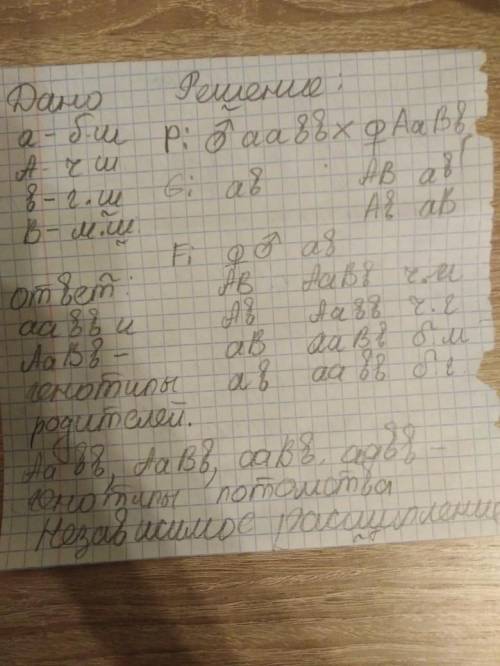 Дано Решение:
а - б.ш P: ♂ аавв х ♀ АаВв
А - ч ш G: ав АВ ав
в - г. ш Ав аВ
В - м. ш F: ♀♂ ав
ответ: АВ АаВв ч.м
аавв и Ав Аавв ч.г
АаВв - аВ ааВв б.м
генотипы ав аавв б г
родителей.
Аавв, АаВв, ааВв, аавв -
генотипы потомства
Независимое расщепление